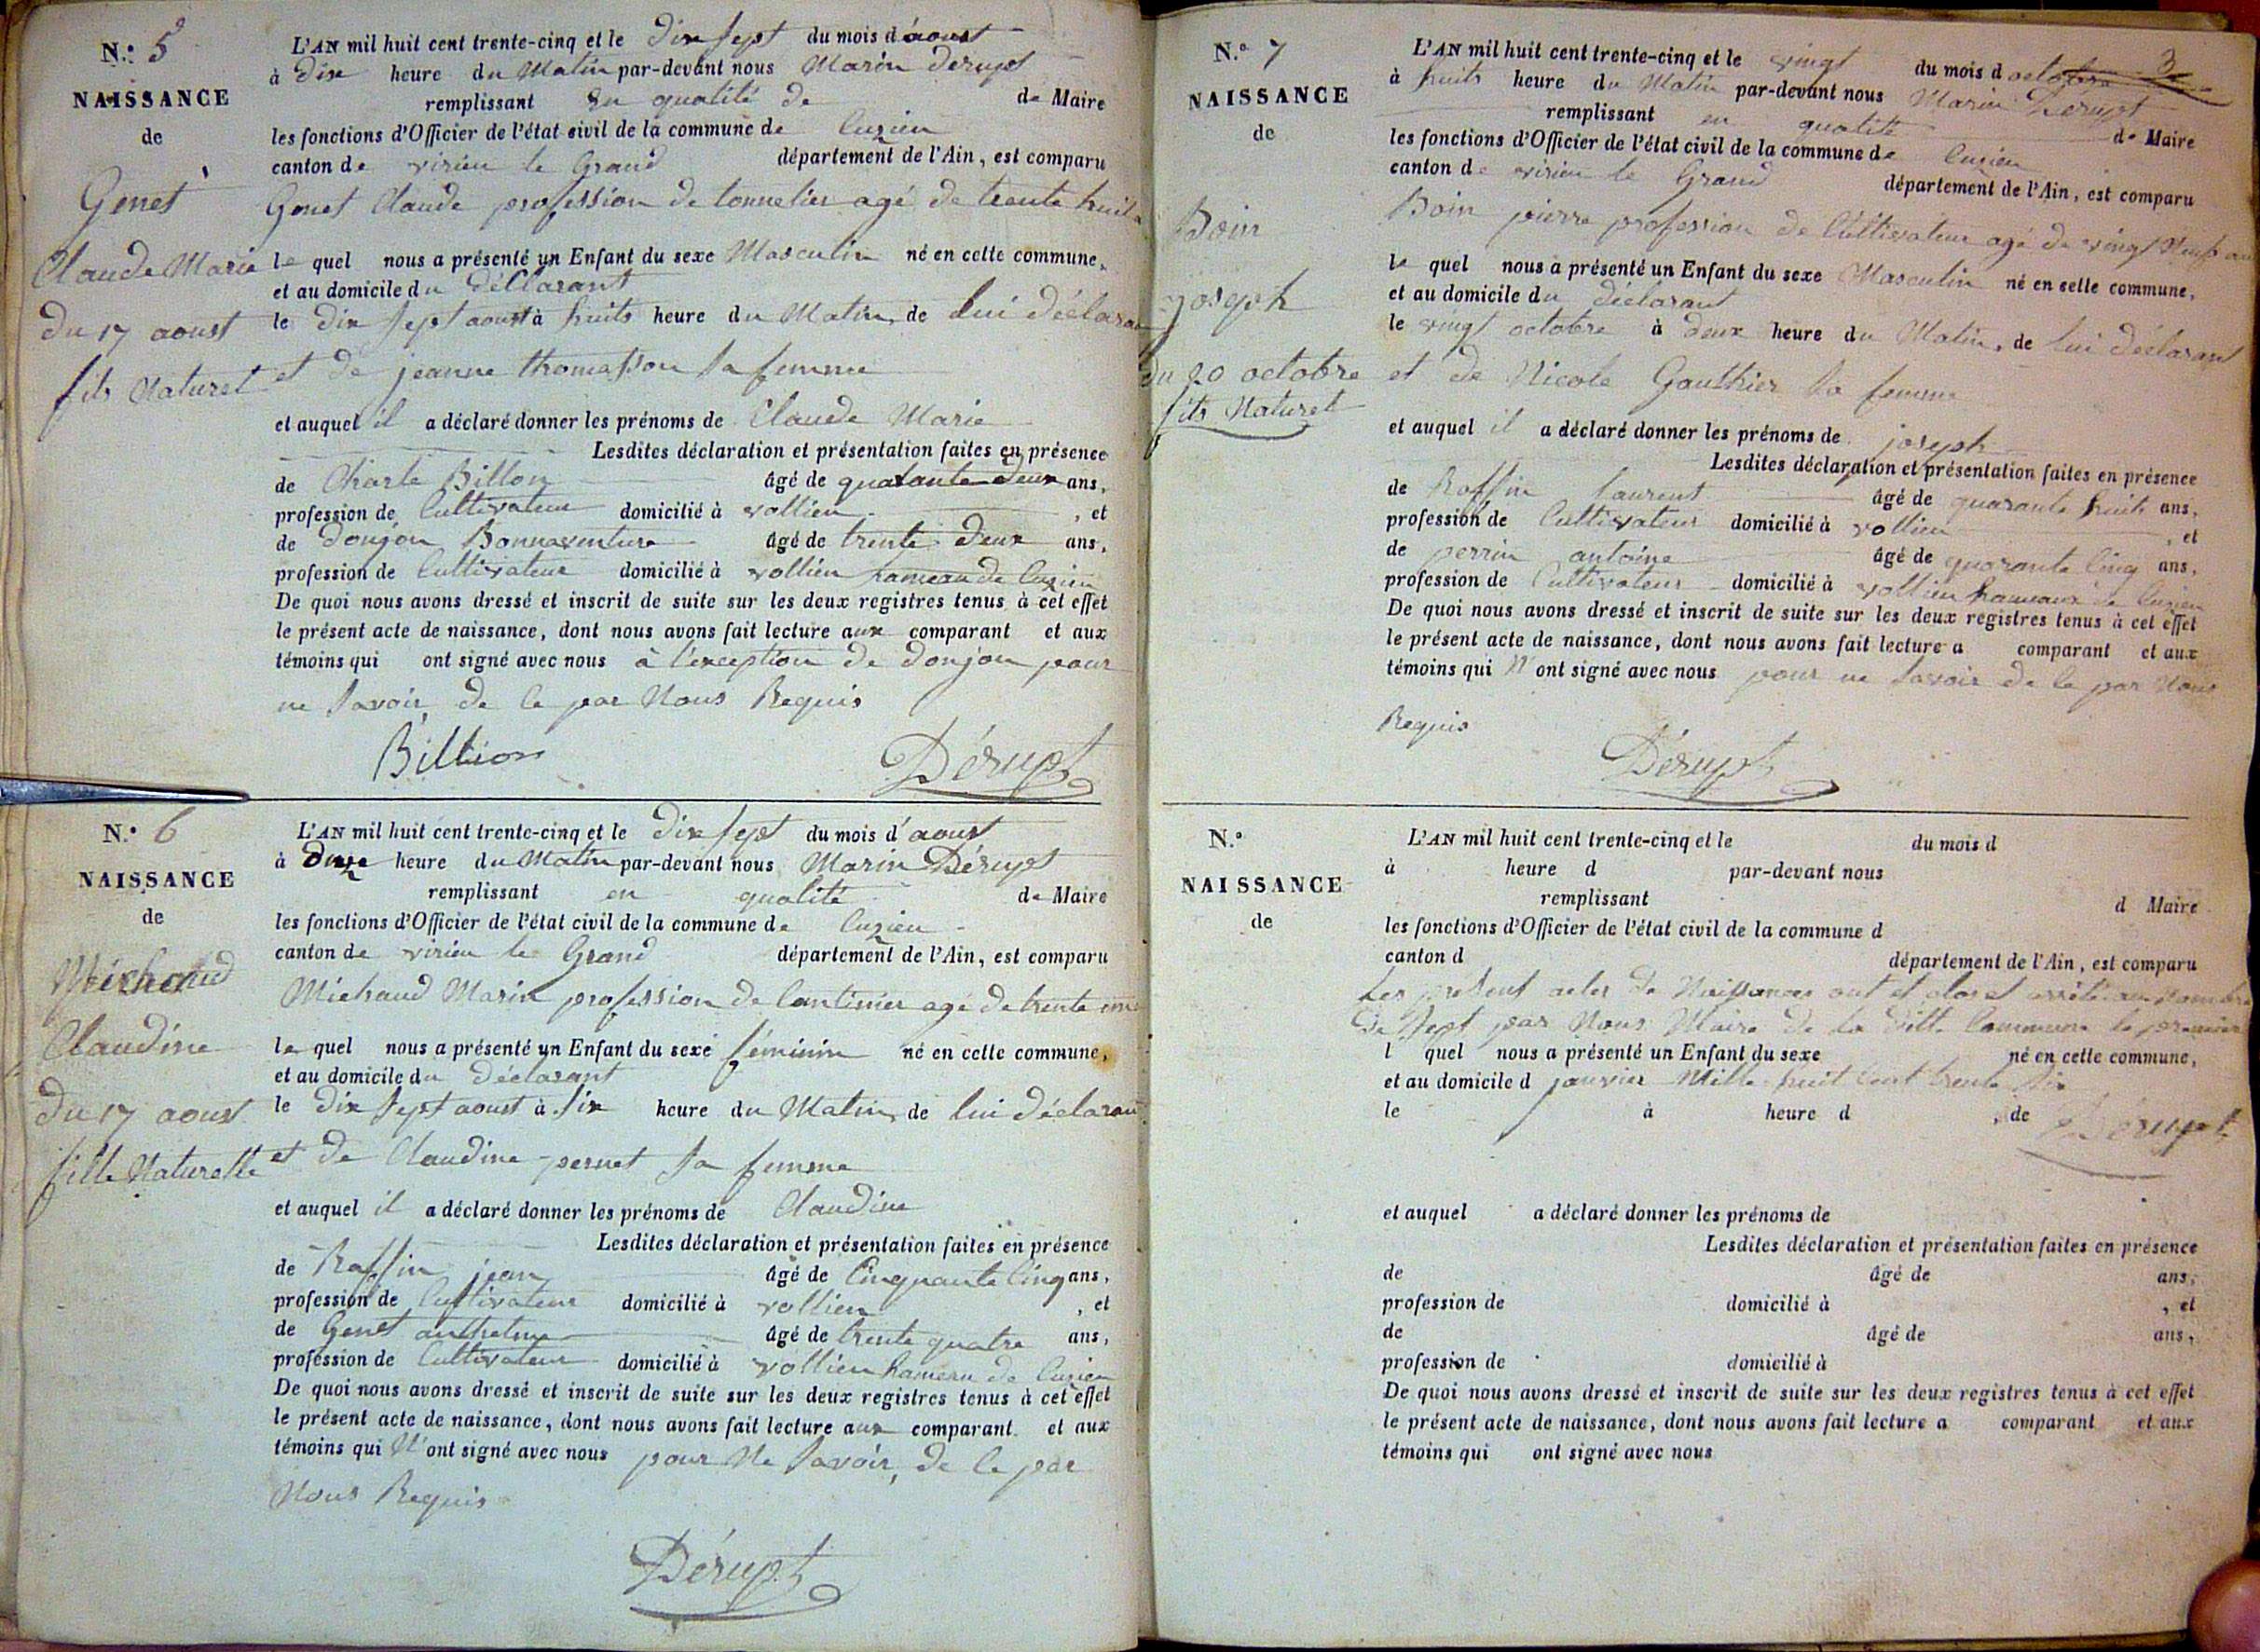 N.º 5
NAISSANCE
de
Genet
Claude Marie
du 17 aoust
fils Naturel
L'AN mil huit cent trente-cinq et le dix sept du mois d'aoust
à dix heure du Matin par-devant nous Marin Derupt
remplissant en qualité de de Maire
les fonctions d'Officier de l'état civil de la commune de Cuzieu
canton de virieu le Grand département de l'Ain, est comparu
Genet Claude profession de tonnelier agé de trente huit
le quel nous a présenté un Enfant du sexe Masculin né en cette commune,
et au domicile du déClarant
le dix sept aoust à huits heure du Matin, de lui déclarant
et de jeanne thomasson sa femme
et auquel il a déclaré donner les prénoms de Claude Marie
Lesdites déclaration et présentation faites en présence
de Charle Billon âgé de quatante deux ans,
profession de Cultivateur domicilié à vollien , et
de Donjon Bonnaventure âgé de trente deux ans,
profession de Cultivateur domicilié à vollien hameau de Cuzieu
De quoi nous avons dressé et inscrit de suite sur les deux registres tenus à cet effet
le présent acte de naissance, dont nous avons fait lecture aux comparant et aux
témoins qui ont signé avec nous à l'exception de donjon pour
ne Savoir de ce par Nous Requis
Billion Dérupt
N.º 6
NAISSANCE
de
Michaud
Claudine
du 17 aoust
fille Naturelle
L'AN mil huit cent trente-cinq et le dix sept du mois d'aoust
à heure du Matin par-devant nous Marin Dérupt
remplissant en qualité de Maire
les fonctions d'Officier de l'état civil de la commune de Cuzieu
canton de virieu le Grand département de l'Ain, est comparu
Michaud Marin profession de Cantinier agé de trente
le quel nous a présenté un Enfant du sexe féminin né en cette commune,
et au domicile du Déclarant
le dix sept aoust à six heure du Matin, de lui déclarant
et de Claudine pernet sa femme
et auquel il a déclaré donner les prénoms de Claudine
Lesdites déclaration et présentation faites en présence
de Raffin jean âgé de Cinquante Cinq ans,
profession de Cultivateur domicilié à vollien , et
de Genet anthelme âgé de trente quatre ans,
profession de Cultivateur domicilié à vollien hameau de Cuzieu
De quoi nous avons dressé et inscrit de suite sur les deux registres tenus à cet effet
le présent acte de naissance, dont nous avons fait lecture aux comparant et aux
témoins qui N'ont signé avec nous pour Ne Savoir, de ce par
Nous Requis
Dérupt
3
N.º 7
NAISSANCE
de
Boin
joseph
du 20 octobre
fils Naturel
L'AN mil huit cent trente-cinq et le vingt du mois d octobre
à huits heure du Matin par-devant nous Marin Derupt
remplissant en qualité de Maire
les fonctions d'Officier de l'état civil de la commune de Cuzieu
canton de virieu le Grand département de l'Ain, est comparu
Boin pierre profession de Cultivateur agé de vingt Neuf an
le quel nous a présenté un Enfant du sexe Masculin né en cette commune,
et au domicile du déclarant
le vingt octobre à deux heure du Matin, de lui déclarant
et de Nicole Gauthier sa femme
et auquel il a déclaré donner les prénoms de joseph
Lesdites déclaration et présentation faites en présence
de Raffin laurent âgé de quarante huit ans,
profession de Cultivateur domicilié à vollien , et
de perrin antoine âgé de quarante Cinq ans,
profession de Cultivateur domicilié à vollien hameaux de Cuzieu
De quoi nous avons dressé et inscrit de suite sur les deux registres tenus à cet effet
le présent acte de naissance, dont nous avons fait lecture a comparant et aux
témoins qui N'ont signé avec nous pour ne Savoir de ce par Nous
Requis
Dérupt
N.º
NAISSANCE
de
L'AN mil huit cent trente-cinq et le du mois d
à heure d par-devant nous
remplissant d Maire
les fonctions d'Officier de l'état civil de la commune d
canton d département de l'Ain, est comparu
Les present actes de Naissances ont et clos et arrêté au Nombre
De Sept par Nous Maire de la ditte Commune le premier
l quel nous a présenté un Enfant du sexe né en cette commune,
et au domicile d janvier Mille huit Cent trente Six
le à heure d , de Dérupt
et auquel a déclaré donner les prénoms de
Lesdites déclaration et présentation faites en présence
de âgé de ans,
profession de domicilié à , et
de âgé de ans,
profession de domicilié à
De quoi nous avons dressé et inscrit de suite sur les deux registres tenus à cet effet
le présent acte de naissance, dont nous avons fait lecture a comparant et aux
témoins qui ont signé avec nous